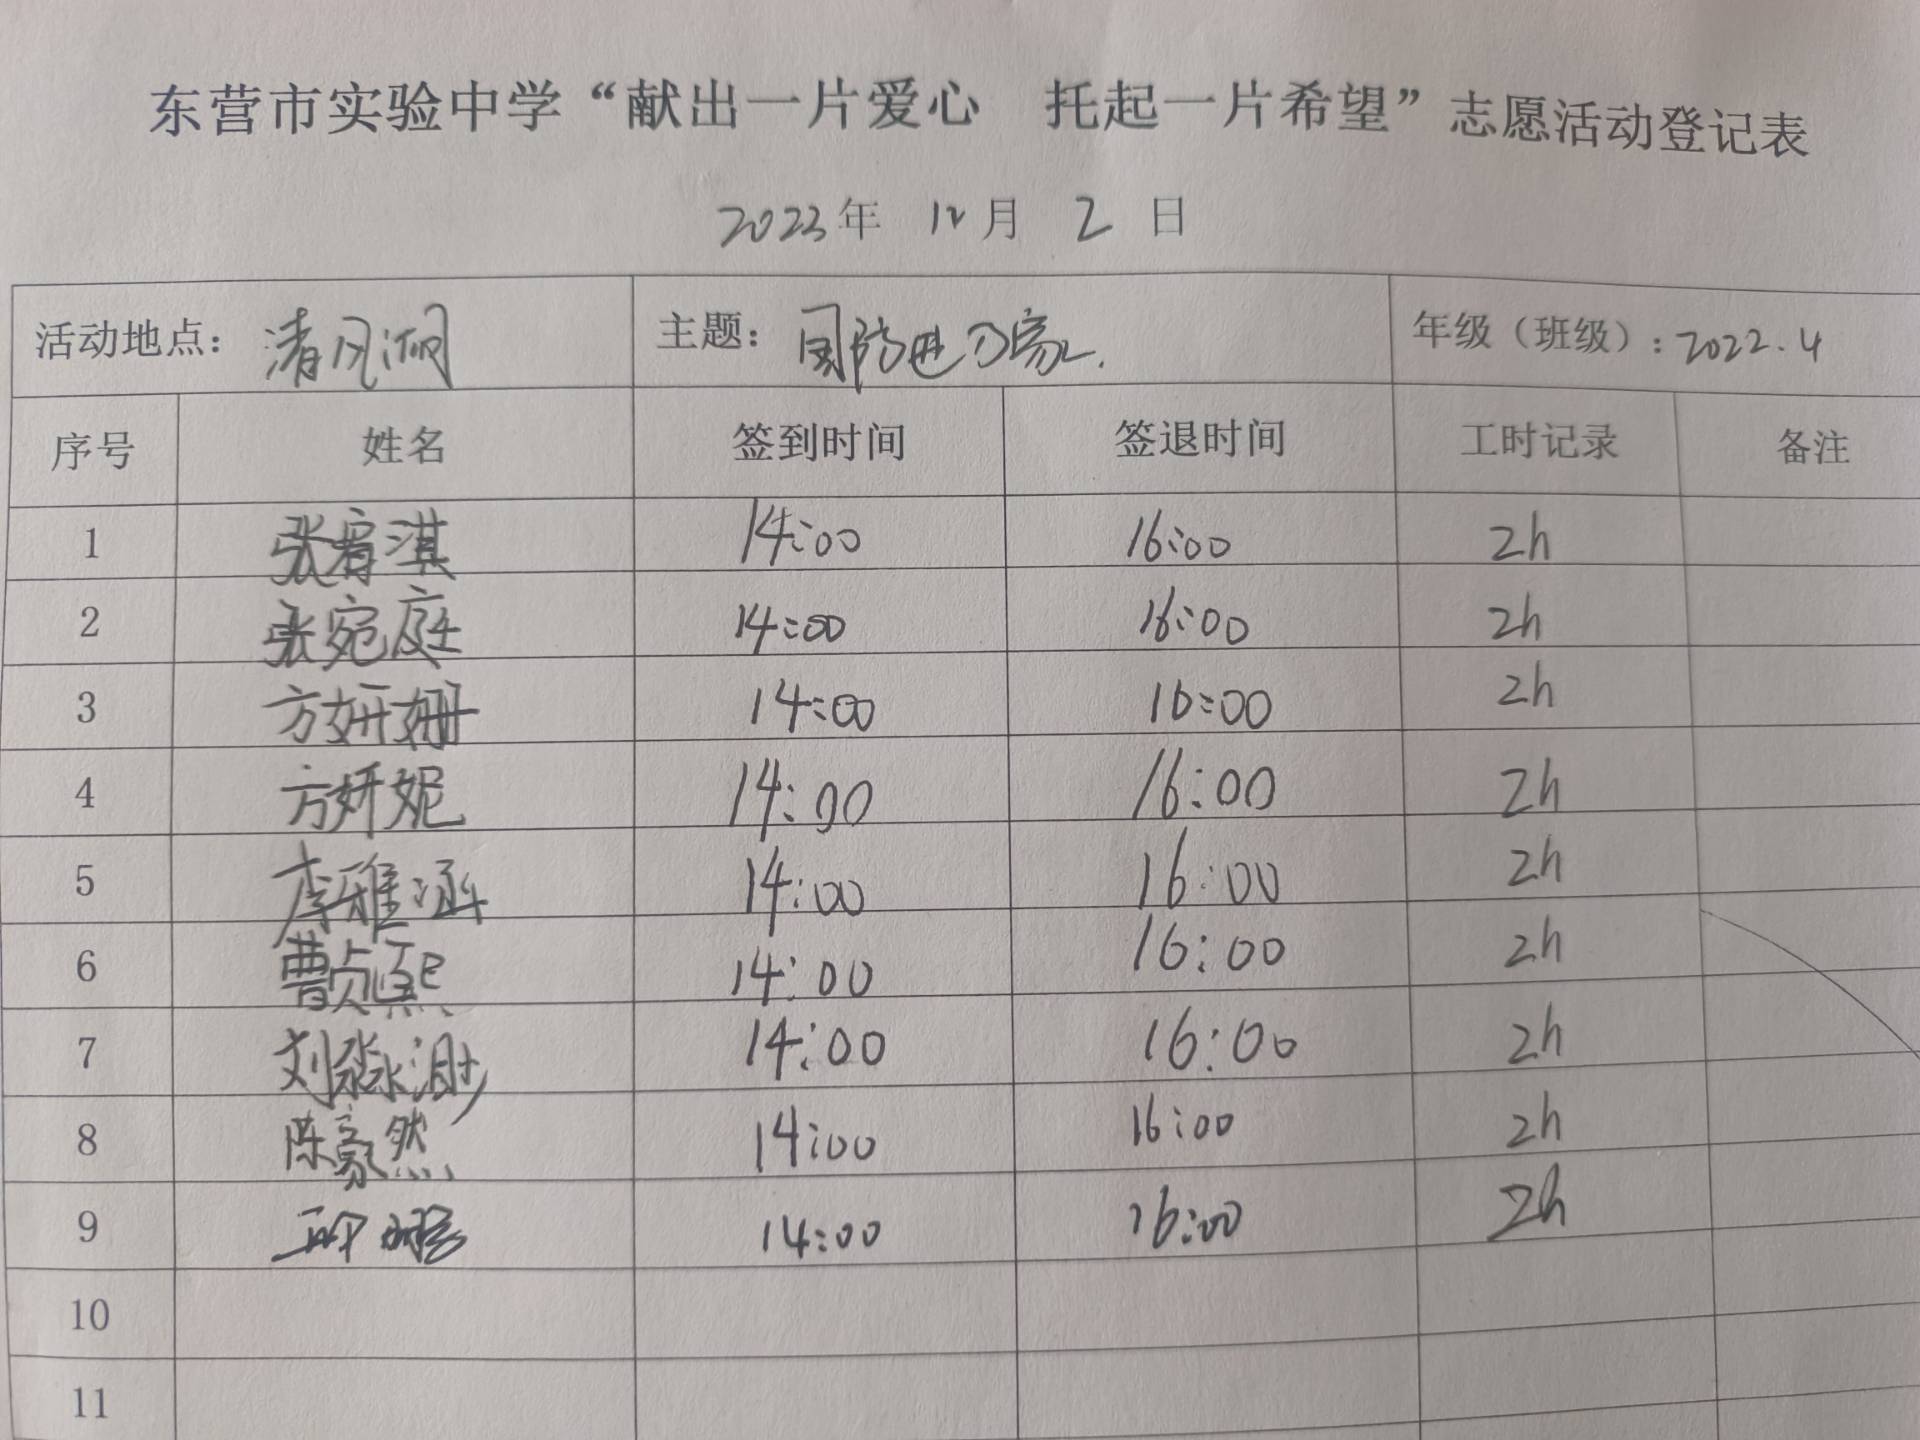 东营市实验中学“献出一片爱心 托起一片希望”志愿活动登记表
2023年 12月 2日
活动地点：清风湖 主题：国防进万家. 年级（班级）：2022.4
序号 姓名 签到时间 签退时间 工时记录 备注
1 张睿淇 14:00 16:00 2h
2 张宛庭 14:00 16:00 2h
3 方妍姗 14:00 16:00 2h
4 方妍妮 14:00 16:00 2h
5 李雅涵 14:00 16:00 2h
6 曹贞熙 14:00 16:00 2h
7 刘淼澍 14:00 16:00 2h
8 陈豪然 14:00 16:00 2h
9 14:00 16:00 2h
10
11